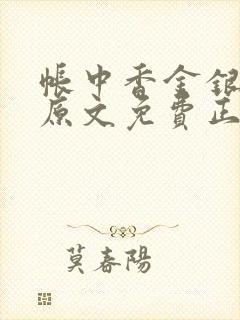 帳中香金銀
原文免費正
莫春陽